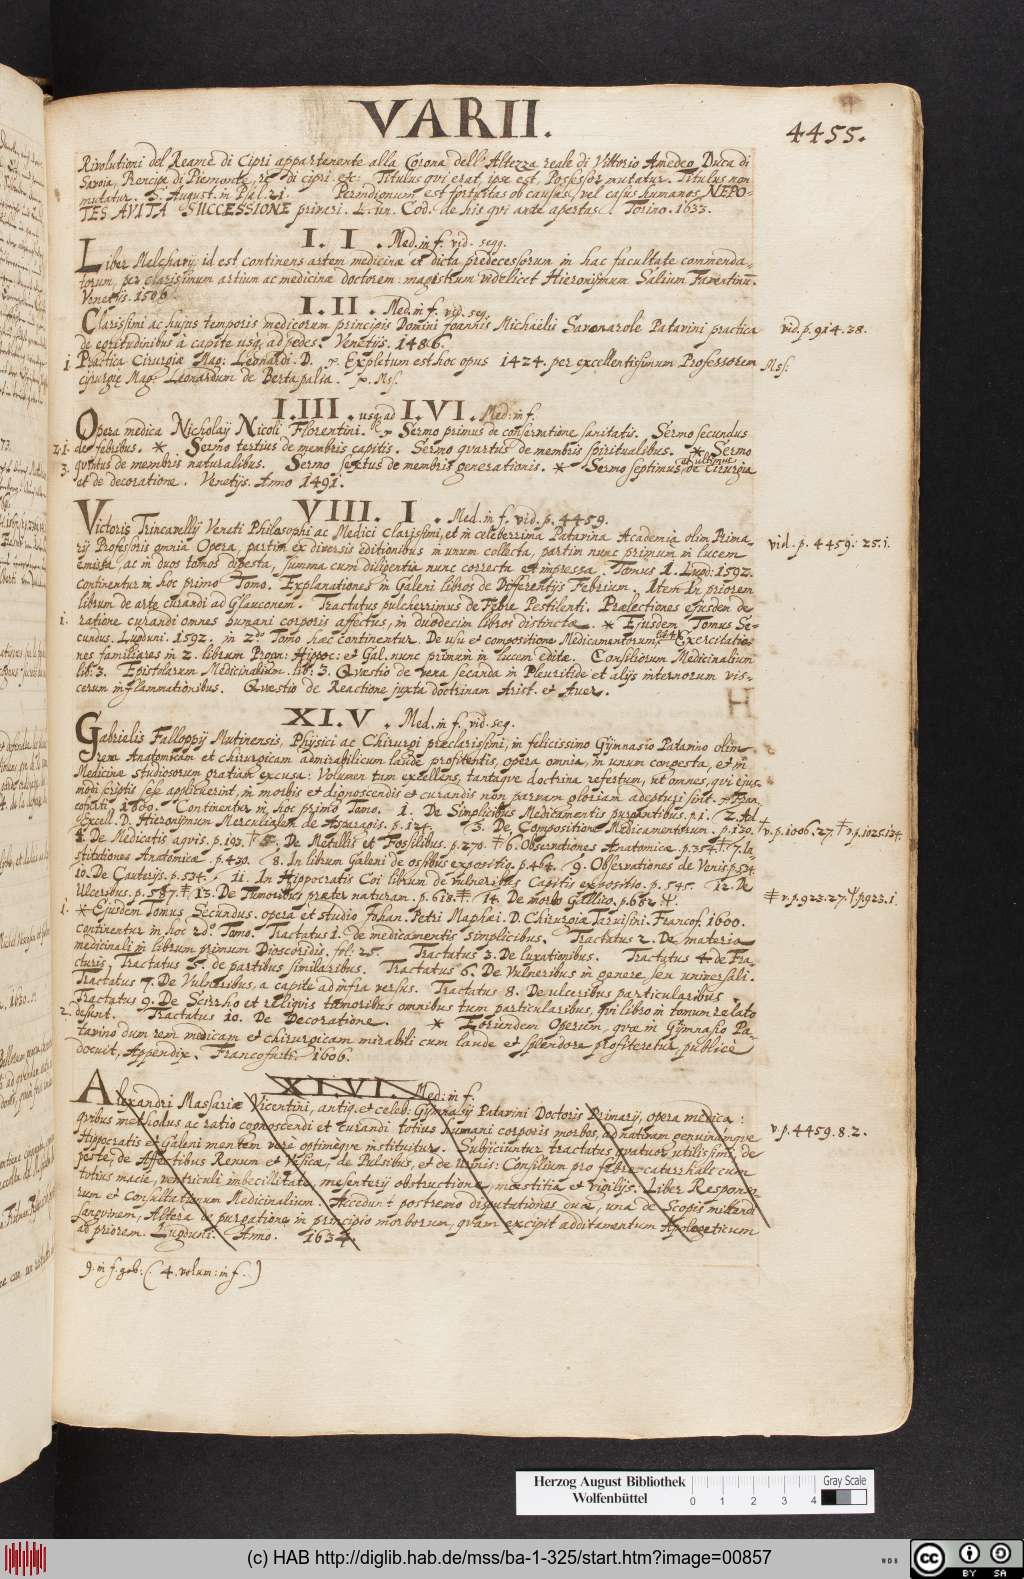 VARII.
4455.
Rivolutioni del Reame di Cipri appartenente alla Corona dell' Altezza reale di Vittorio Amedeo, Duca di
Savoia, Prencipe di Piemonte, re di cipri etc: Titulus qui erat, ipse est, Possessor mutatur. Titulus non
mutatur. S. August. in Psal. 21. est fortuitas ob causas, vel casus humanos, NEPO-
TES AVITA SUCCESSIONE privari. L. un. Cod. de his qui ante apertas. Torino. 1633.
I. I. Med. in f. vid. seqq.
Liber Melchary, id est continens artem medicinæ et dicta predecessorum in hac facultate commenda-
torum, per clarissimum artium ac medicinæ doctorem magistrum videlicet Hieronijmum Salium Faventinũ.
Venetijs. 1506
I. II. Med. in f. vid. seq.
Clarissimi ac hujus temporis medicorum principis Domini Joannis Michaëlis Savonarole Patavini practica
vid. p. 914. 28.
de egritudinibus a capite usq; ad pedes. Venetijs. 1486.
1 Practica Cirurgiæ Mag: Leonardi. D. Expletum est hoc opus 1424. per excellentissimum Professorem
Mss:
cirurgię Mag: Leonardum de Bertapalia. Mss.
I. III. usq; ad I. VI. Med: in f.
Opera medica Nicholaÿ Nicoli Florentini. Sermo primus de conservatione sanitatis. Sermo secundus
2. 1. de febribus. * Sermo tertius de membris capitis. Sermo quartus de membris spiritualibus. * Sermo
3. quintus de membris naturalibus. Sermo sextus de membris generationis. * Sermo septimus, et ultimus de Cirurgia
et de decoratione. Venetijs. Anno 1491.
VIII. I. Med. in f. vid. p. 4459.
Victoris Trincavellÿ Veneti Philosophi ac Medici clarissimi, et in celeberrima Patavina Academia olim Prima
rÿ Professoris omnia Opera, partim ex diversis editionibus in unum collecta, partim nunc primum in lucem
vid. p. 4459. 25. 1.
emissa, ac in duos tomos digesta, summa cum diligentia nunc correcta et impressa. Tomus 1. Lugd: 1592.
continentur in hoc primo Tomo. Explanationes in Galeni libros de Differentijs Febrium. Item In priorem
librum de arte curandi ad Glauconem. Tractatus pulcherrimus de Febre Pestilenti. Prælectiones ejusdem de
1. ratione curandi omnes humani corporis affectus, in duodecim libros distinctæ. * Ejusdem Tomus Se-
cundus. Lugduni. 1592. in 2do Tomo hæc continentur. De usu et compositione Medicamentorum, Exercitatio-
nes familiares in 2. librum Progn: Hippoc: et Gal. nunc primum in lucem editæ. Consiliorum Medicinalium
lib: 3. Epistolarum Medicinalium. lib: 3. Quæstio de vena secanda in Pleuritide et alijs internorum vis-
cerum inflammationibus. Quæstio de Reactione juxta doctrinam Arist. et Aver.
H
XI. V. Med. in f. vid. seq.
Gabrielis Falloppÿ Mutinensis, Physici ac Chirurgi præclarissimi, in felicissimo Gÿmnasio Patavino olim
rem Anatomicam et chirurgicam admirabilicum laude profitentis, opera omnia, in unum congesta, et in
Medicinæ studiosorum gratiam excusa: Volumen tum excellens, tantaque doctrina refertum, ut omnes, qui ejus-
modi scriptis sese applicuerint, in morbis et dignoscendis et curandis non parvam gloriam adepturi sint. Fran-
cofurti. 1600. Continentur in hoc primo Tomo. 1. De Simplicibus Medicamentis purgantibus. p. 1. 2. Ad
Excell. D. Hieronymum Mercurialem de Asparagis. p. 124. 3. De Compositione Medicamentorum. p. 130.
v. p. 1006. 27. v. p. 1025. 124.
4. De Medicatis aquis. p. 192. 5. De Metallis et Fossilibus. p. 270. 6. Observationes Anatomicæ. p. 354. 7. In-
stitutiones Anatomicæ. p. 430. 8. In librum Galeni de ossibus expositio. p. 464. 9. Observationes de Venis p. 534.
10. De Cauterijs. p. 534. 11. In Hippocratis Coi librum de vulneribus Capitis expositio. p. 545. 12. De
Ulceribus. p. 587. 13. De Tumoribus præter naturam. p. 618. 14. De morbo Gallico. p. 682
v. p. 923. 27. p. 923. 1.
1. * Ejusdem Tomus Secundus. opera et studio Johan. Petri Maphæi. D. Chirurgiæ Tarvisini. Francof. 1600.
continentur in hoc 2do Tomo. Tractatus 1. de medicamentis simplicibus. Tractatus 2. De materia
medicinali in librum primum Dioscoridis. fol: 25. Tractatus 3. De luxationibus. Tractatus 4. de Fra-
cturis. Tractatus 5. de partibus similaribus. Tractatus 6. De Vulneribus in genere, seu universali.
Tractatus 7. De Vulneribus, a capite ad infra versus. Tractatus 8. De ulceribus particularibus.
Tractatus 9. De Scirrho et reliquis tumoribus omnibus tum particularibus, qui libro in tomum relato
2. desunt. Tractatus 10. De Decoratione. * Eorundem Operum, quæ in Gÿmnasio Pa-
tavino dum rem medicam et chirurgicam mirabili cum laude et splendore profiteretur publicè
docuit, Appendix. Francofurti. 1606.
XI. VI. Med: in f.
Alexandri Massariæ Vicentini, antiq. et celeb: Gymnasÿ Patavini Doctoris Primarÿ, opera medica:
quibus methodus ac ratio cognoscendi et curandi totius humani corporis morbos, ad nativam genuinámque
v. p. 4459. 8. 2.
Hippocratis et Galeni mentem verè optiméque instituitur. Subjiciuntur tractatus quatuor utilissimi, de
peste, de Affectibus Renum et Vesicæ, de Pulsibus, et de urinis: Consilium pro febre catarrhali cum
totius macie, ventriculi imbecillitate, mesenterij obstructione, moestitia et vigilijs. Liber Responso-
rum et Consultationum Medicinalium. Accedunt postremo disputationes duæ, una de Scopis mittendi
sanguinem, Altera de purgatione in principio morborum, quam excipit additamentum Apologeticum
ad priorem. Lugduni. Anno. 1634.
9. in f. geb: (4. volum: in f.)
Herzog August Bibliothek
Wolfenbüttel
0 1 2 3 4
Gray Scale
(c) HAB http://diglib.hab.de/mss/ba-1-325/start.htm?image=00857
WDB
cc BY SA